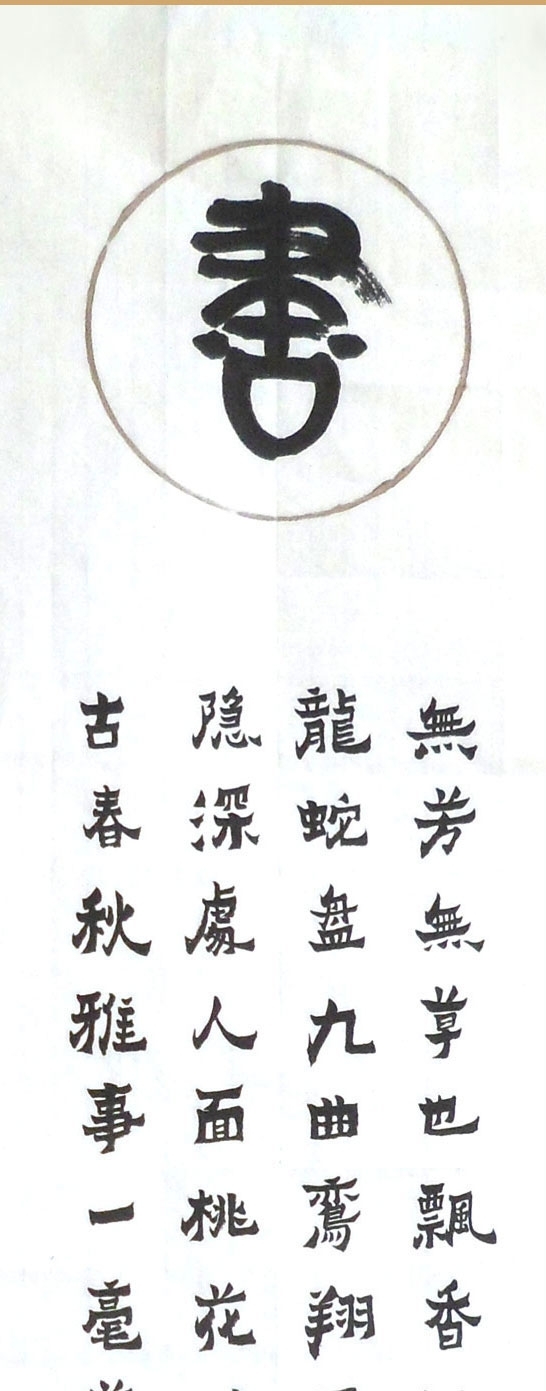 書
無芳無草也飄香
龍蛇盘九曲鸞翔
隐深處人面桃花
古春秋雅事一毫